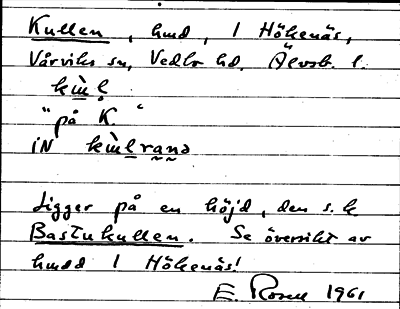 Kullen, hmd, 1 Hökenäs,
Vårviks sn, Vedbo hd. Älvsb. l.
kùl̥
"på K."
iN kùl̥rana
Ligger på en höjd, den s.k
Bastukullen. Se översikt av
hmd 1 Hökenäs!
E. Rosell 1961